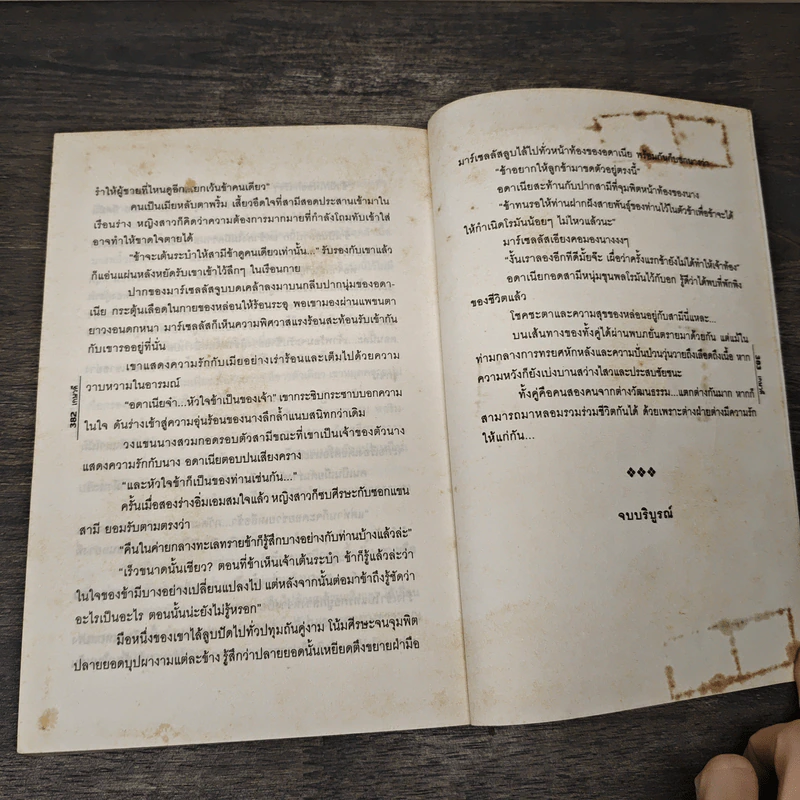 รำให้ผู้ชายที่ไหนดูอีก...ยกเว้นข้าคนเดียว"
คนเป็นเมียหลับตาพริ้ม เสียวซ่านใจที่สามีสอดประสานเข้ามาใน
เรือนร่าง หญิงสาวก็คิดว่าความต้องการมากมายที่กำลังโถมทับเข้าใส่
อาจทำให้ขาดใจตายได้
"ข้าจะเต้นระบำให้สามีข้าดูคนเดียวเท่านั้น..." รับรองกับเขาแล้ว
ก็แอ่นแผ่นหลังหยัดรับเขาเข้าไว้ลึกๆ ในเรือนกาย
ปากของมาร์เซลลัสจูบบดเคล้าลงมาบนกลีบปากนุ่มของอดา-
เนีย กระตุ้นเลือดในกายของหล่อนให้ร้อนระอุ พอเขามองผ่านแพขนตา
ยาวงอนดกหนา มาร์เซลลัสก็เห็นความพิศวาสแรงร้อนสะท้อนรับเข้ากัน
กับเขารออยู่ที่นั่น
เขาแสดงความรักกับเมียอย่างเร่าร้อนและเต็มไปด้วยความ
วาบหวามในอารมณ์
"อดาเนียจ๋า...หัวใจข้าเป็นของเจ้า" เขากระซิบกระซาบบอกความ
ในใจ ดันร่างเข้าสู่ความอุ่นร้อนของนางลึกล้ำแนบสนิทกว่าเดิม
วงแขนนางสวมกอดรอบตัวสามีขณะที่เขาเป็นเจ้าของตัวนาง
แสดงความรักกับนาง อดาเนียตอบปนเสียงคราง
"และหัวใจข้าก็เป็นของท่านเช่นกัน..."
ครั้นเมื่อสองร่างอิ่มเอมสมใจแล้ว หญิงสาวก็ซบศีรษะกับซอกแขน
สามี ยอมรับตามตรงว่า
"คืนในค่ายกลางทะเลทรายข้าก็รู้สึกบางอย่างกับท่านบ้างแล้วล่ะ"
"เร็วขนาดนั้นเชียว? ตอนที่ข้าเห็นเจ้าเต้นระบำ ข้าก็รู้แล้วล่ะว่า
ในใจของข้ามีบางอย่างเปลี่ยนแปลงไป แต่หลังจากนั้นต่อมาข้าถึงรู้ชัดว่า
อะไรเป็นอะไร ตอนนั้นน่ะยังไม่รู้หรอก"
มือหนึ่งของเขาไล้ลูบปัดไปทั่วปทุมถันคู่งาม โน้มศีรษะจนจุมพิต
ปลายยอดบุปผางามแต่ละข้าง รู้สึกว่าปลายยอดนั้นเหยียดตึงขยายฝ่ามือ
382 เกษวดี
มาร์เซลลัสลูบไล้ไปทั่วหน้าท้องของอดาเนีย พร้อมกันกับ
"ข้าอยากให้ลูกข้ามาขดตัวอยู่ตรงนี้"
อดาเนียสะท้านกับปากสามีที่จุมพิตหน้าท้องของนาง
"ข้าทนรอให้ท่านฝากฝังสายพันธุ์ของท่านไว้ในตัวข้าเพื่อข้าจะได้
ให้กำเนิดโรมันน้อยๆ ไม่ไหวแล้วนะ"
มาร์เซลลัสเอียงคอมองนางงงๆ
"งั้นเราลองอีกทีดีมั้ยจ๊ะ เผื่อว่าครั้งแรกข้ายังไม่ได้ทำให้เจ้าท้อง"
อดาเนียกอดสามีหนุ่มขุนพลโรมันไว้กับอก รู้ดีว่าได้พบที่พักพิง
ของชีวิตแล้ว
โชคชะตาและความสุขของหล่อนอยู่กับสามีนี่แหละ...
บนเส้นทางของทั้งคู่ได้ผ่านพบภยันตรายมาด้วยกัน แต่แม้ใน
ท่ามกลางการทรยศหักหลังและความปั่นป่วนวุ่นวายถึงเลือดถึงเนื้อ หาก
ความหวังก็ยังเบ่งบานสว่างไสวและประสบชัยชนะ
ทั้งคู่คือคนสองคนจากต่างวัฒนธรรม...แตกต่างกันมาก หากก็
สามารถมาหลอมรวมร่วมชีวิตกันได้ ด้วยเพราะต่างฝ่ายต่างมีความรัก
ให้แก่กัน...
จบบริบูรณ์
383